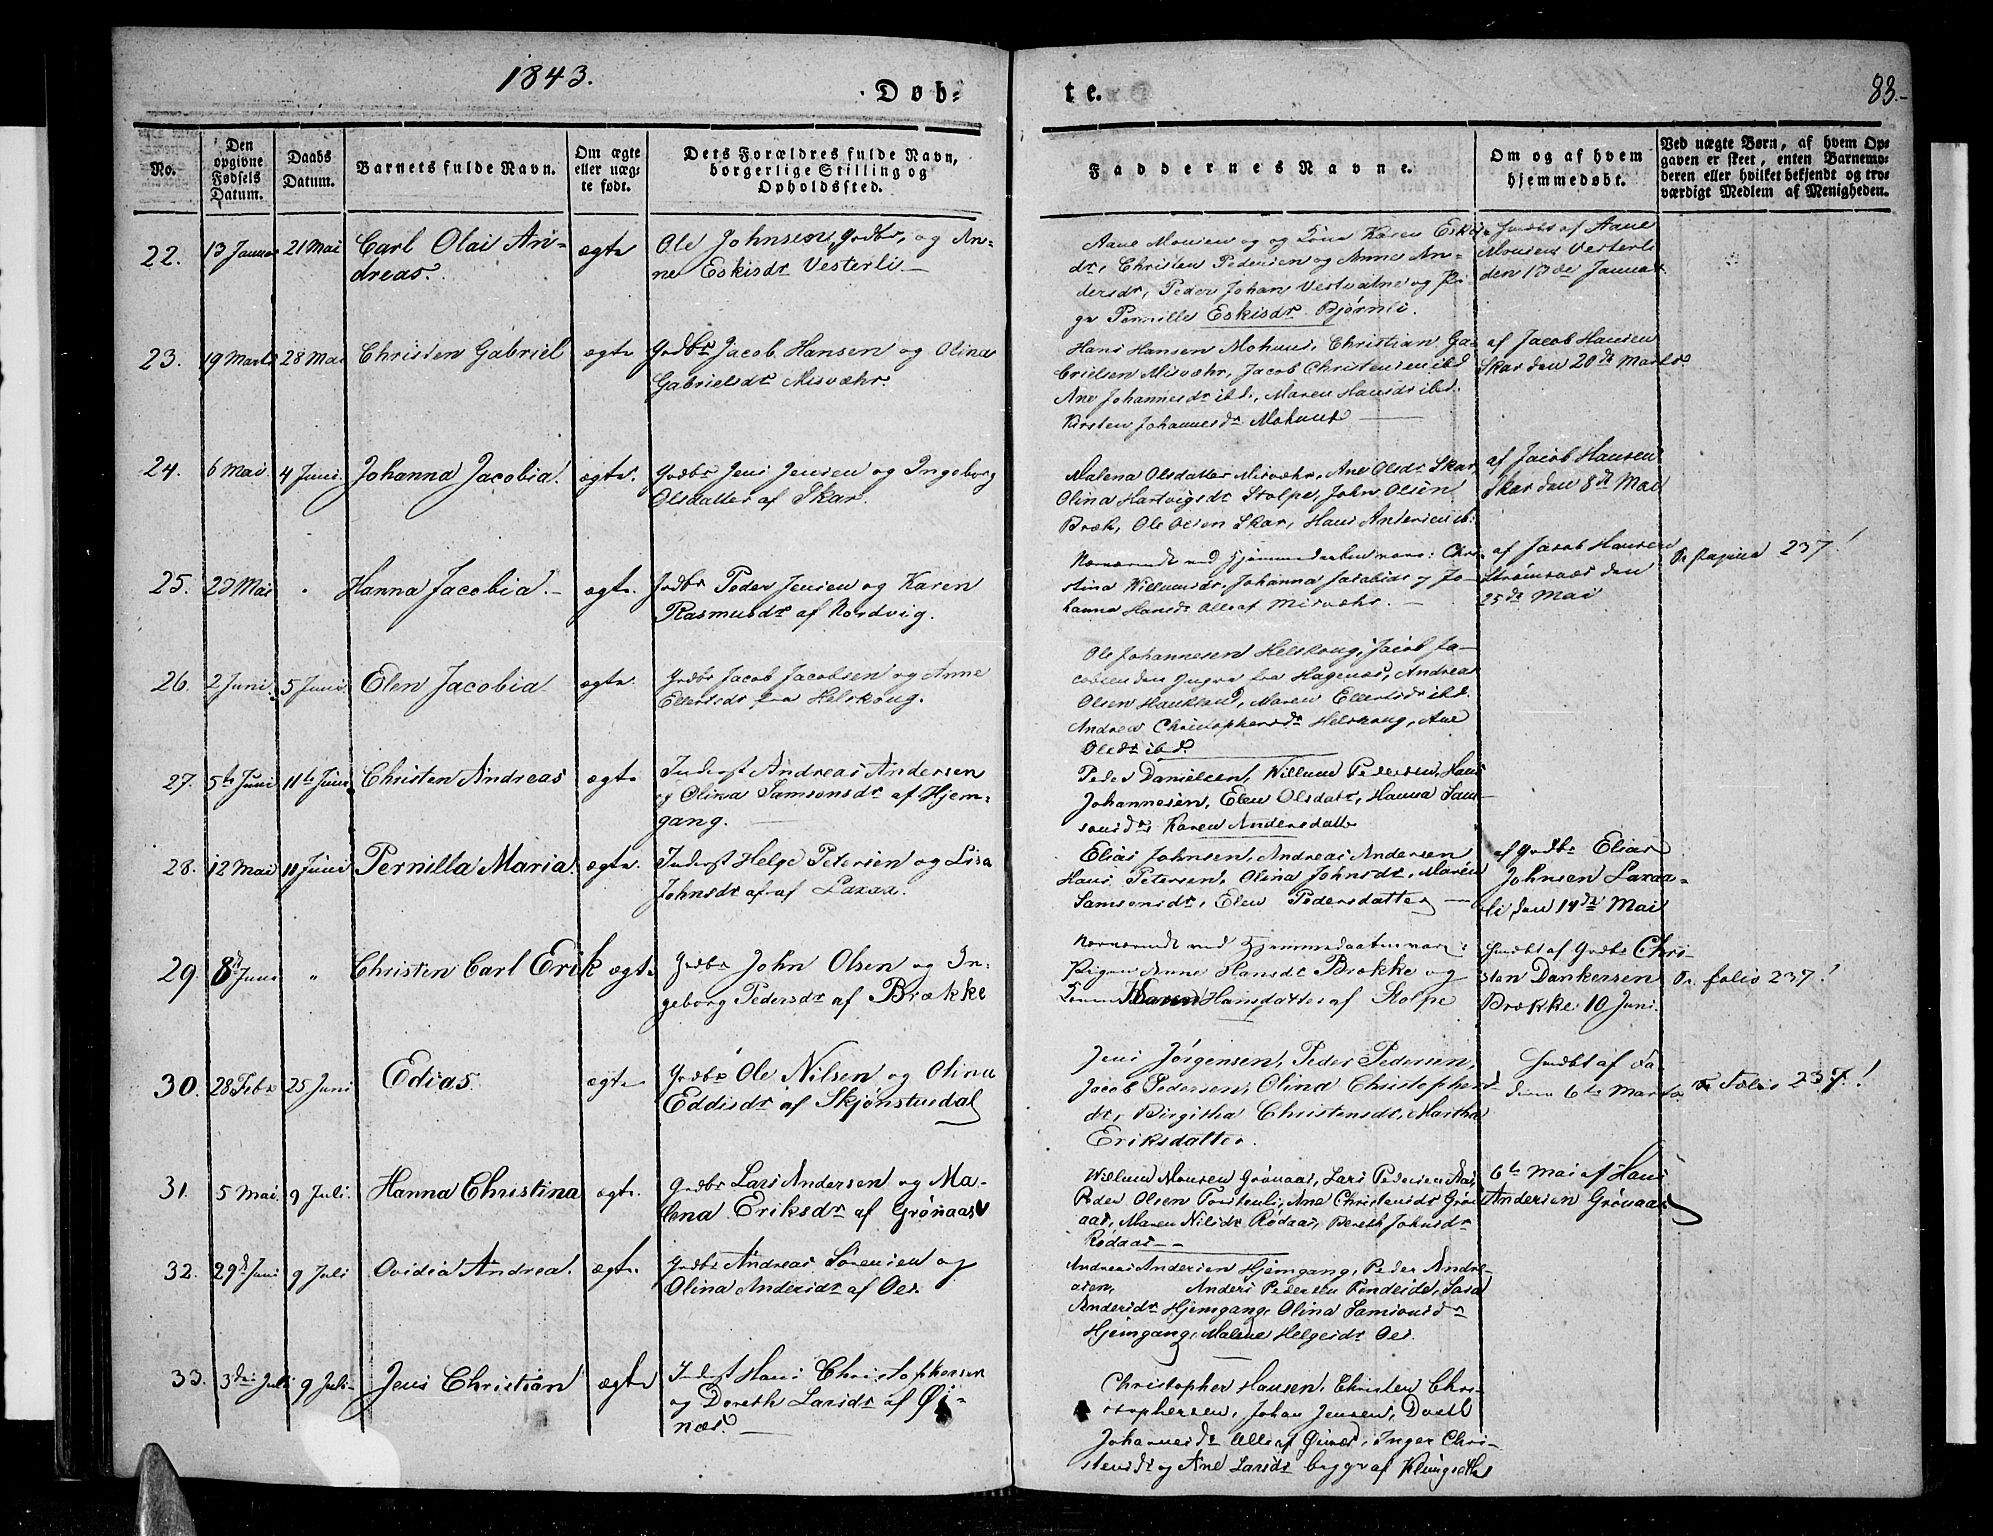 1843.
Døb-
te.
83.-
No.
Den opgivne Fødsels Datum.
Daabs Datum.
Barnets fulde Navn.
Om ægte eller uægte født.
Dets Forældres fulde Navn, borgerlige Stilling og Opholdssted.
Faddernes Navne.
Om og af hvem hjemmedøbt.
Ved uægte Børn, af hvem Opgaven er skeet, enten Barnemoderen eller hvilket bekjendt og troværdigt Medlem af Menigheden.
22. 13 Januar 21 Mai Carl Olai An- ægte Ole Johnsen, Grdbr, og An-
dreas. ne Eskisdr Vesterli -
Aane Monsen og Kone Karen Eskis-
dr, Christen Pedersen og Anne An-
dersdr, Peder Johan Vestvatne og Pi-
ge Pernille Eskisdr Bjørnli.
af Aane
Monsen Vesterli
den 17de Januar
23. 19 Marts 28 Mai Christen Gabriel ægte Grdbr Jacob Hansen og Olina
Gabrielsdr Misvæhr.
Hans Hansen Mohuus, Christian Ga-
brielsen Misvæhr, Jacob Christensen ibd
Ane Johannesdr ibd, Maren Hansdr ibd.
Kirsten Johannesdr Mohuus
af Jacob Hansen
Skar den 20de Marts
24. 6 Mai 4 Juni Johanna Jacobia. ægte. Grdbr Jens Jensen og Ingeborg
Olsdatter af Skar.
Malena Olsdatter Misvæhr, Ane Olsdr Skar,
Olina Hartvigsdr Stolpe, John Olsen
Bræk, Ole Olsen Skar, Hans Andersen ib.
af Jacob Hansen
Skar den 8de Mai
25. 23 Mai " Hanna Jacobia. - ægte. Grdbr Peder Jensen og Karen
Rasmusdr af Nordvig.
Nærværende ved Hjemmedaaben vare: Chri-
stina Willumsdr, Johanna Jacobsdr og Jo-
hanna Hansdr Alle af Misvæhr. -
af Jacob Hansen
Strømsnæs den
25de Mai
Pagina 237!
26. 2 Juni. 5 Juni Elen Jacobia ægte. Grdbr Jacob Jacobsen og Anne
Ellertsdr fra Helskoug.
Ole Johannesen Helskoug, Jacob Ja-
cobsen den Yngre fra Hagenæs, Andreas
Olsen Haukland, Maren Ellertsdr ibd.
Andrea Christophersdr Helskoug, Ane
Olsdr ibd.
27. 5te Juni 11te Juni Christen Andreas ægte Inderst Andreas Andersen
og Olina Samsonsdr af Hjem-
gang.
Peder Danielsen, Willum Pedersen, Hans
Johannesen, Elen Olsdatr, Hanna Sam-
sonsdr Karen Andersdatter
28. 12 Mai 11 Juni Pernilla Maria. ægte. Inderst Helge Petersen og Lisa
Johnsdr af af Laxaa.
Elias Johnsen, Andreas Andersen
Hans Petersen, Olina Johnsdr, Maren
Samsonsdr, Elen Pedersdatter -
af Grdbr Elias
Johnsen Laxaa-
li den 14de Mai
29. 8de Juni " Christen Carl Erik ægte Grdbr John Olsen og In-
geborg Pedersdr af Brække
Nærværende ved Hjemmedaaben vare:
Pigen Anne Hansdr Brække og
Konen Maren Hansdatter af Stolpe
af Grdbr Chri-
sten Dankersen
Brække 10 Juni.
folio 237!
30. 28 Febr 25 Juni Edias. ægte Grdbr Ole Nilsen og Olina
Eddisdr af Skjønstuedal
Jens Jørgensen, Peder Pedersen,
Jacob Pedersen, Olina Christophers-
dr, Birgitha Christensdr, Martha
Eriksdatter.
af Fa-
deren 6te Marts.
Folio 237!
31. 5 Mai. 9 Juli. Hanna Christina ægte. Grdbr Lars Andersen og Ma-
lena Eriksdr af Grønaas
Willum Monsen Grønaas, Lars Pedersen Aas,
Peder Olsen Torstenli, Ane Christensdr Grøn-
aas, Maren Nilsdr Rødaas, Bereth Johnsdr
Rødaas - -
6te Mai af Hans
Andersen Grønaas
32. 29de Juni 9 Juli Ovidia Andrea. ægte. Grdbr Andreas Sørensen og
Olina Andersdr af Oes.
Andreas Andersen Hjemgang, Peder Andre-
asen, Anders Pedersen Tendeide, Sara
Andersdr Hjemgang, Olina Samsonsdr
Hjemgang, Malene Helgesdr Oes.
33. 3die Juli 9 Juli - Jens Christian ægte Inderst Hans Christophersen
og Doreth Larsdr af Øi-
næs. -
Christopher Hansen, Christen Chri-
stophersen, Johan Jensen, Doeth
Johannesdr Alle af Øinæs, Inger Chri-
stensdr og Ane Larsdr begge af Klungseth